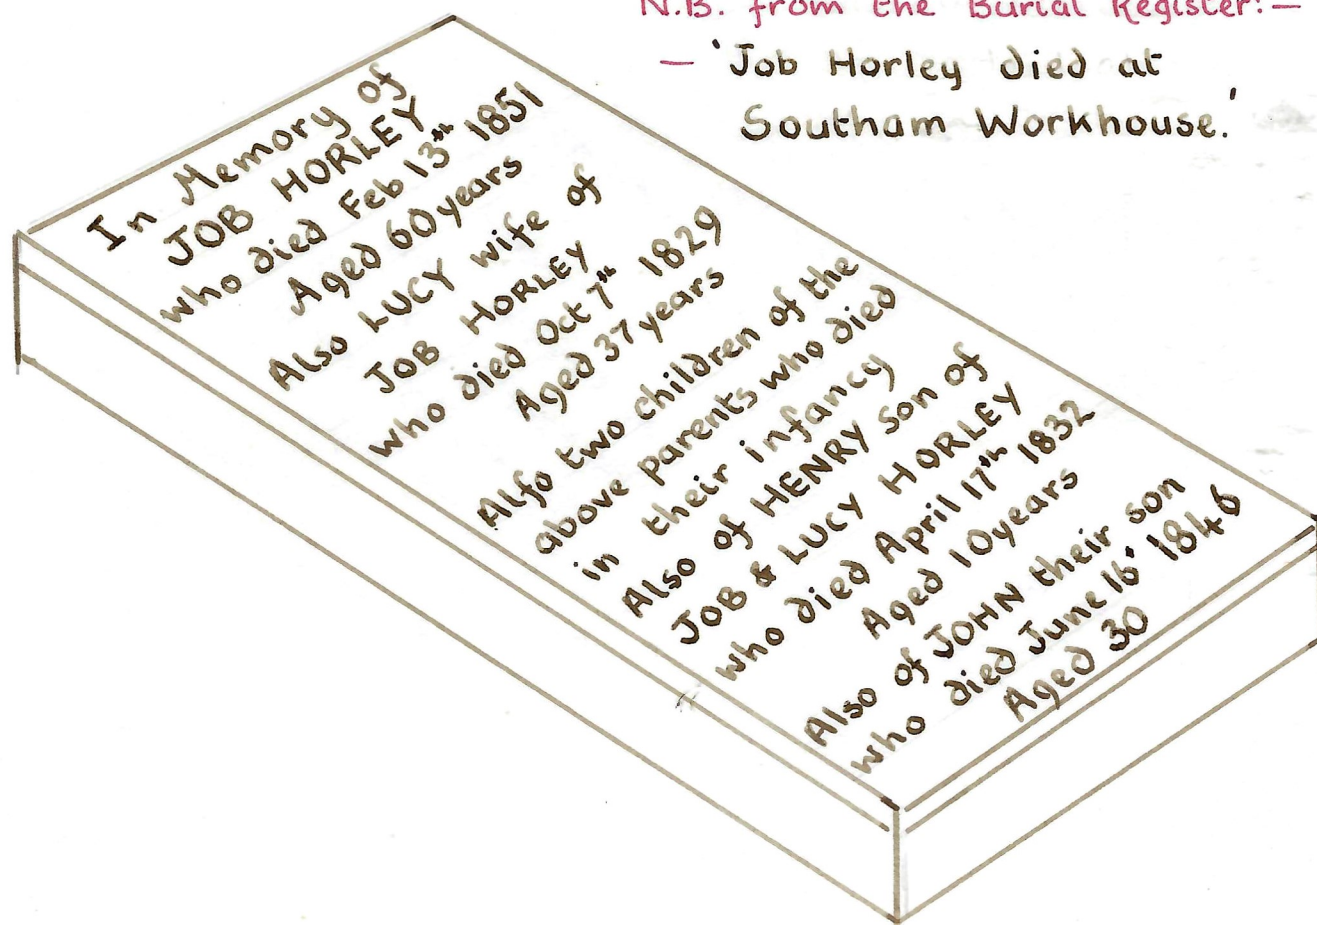 N.B. from the Burial Register:—
— 'Job Horley died at
Southam Workhouse.'
In Memory of
JOB HORLEY
who died Feb 13th 1851
Aged 60 years
Also LUCY wife of
JOB HORLEY
who died Oct 7th 1829
Aged 37 years
Alſo two children of the
above parents who died
in their infancy
Also of HENRY son of
JOB & LUCY HORLEY
who died April 17th 1832
Aged 10 years
Also of JOHN their son
who died June 16' 1846
Aged 30